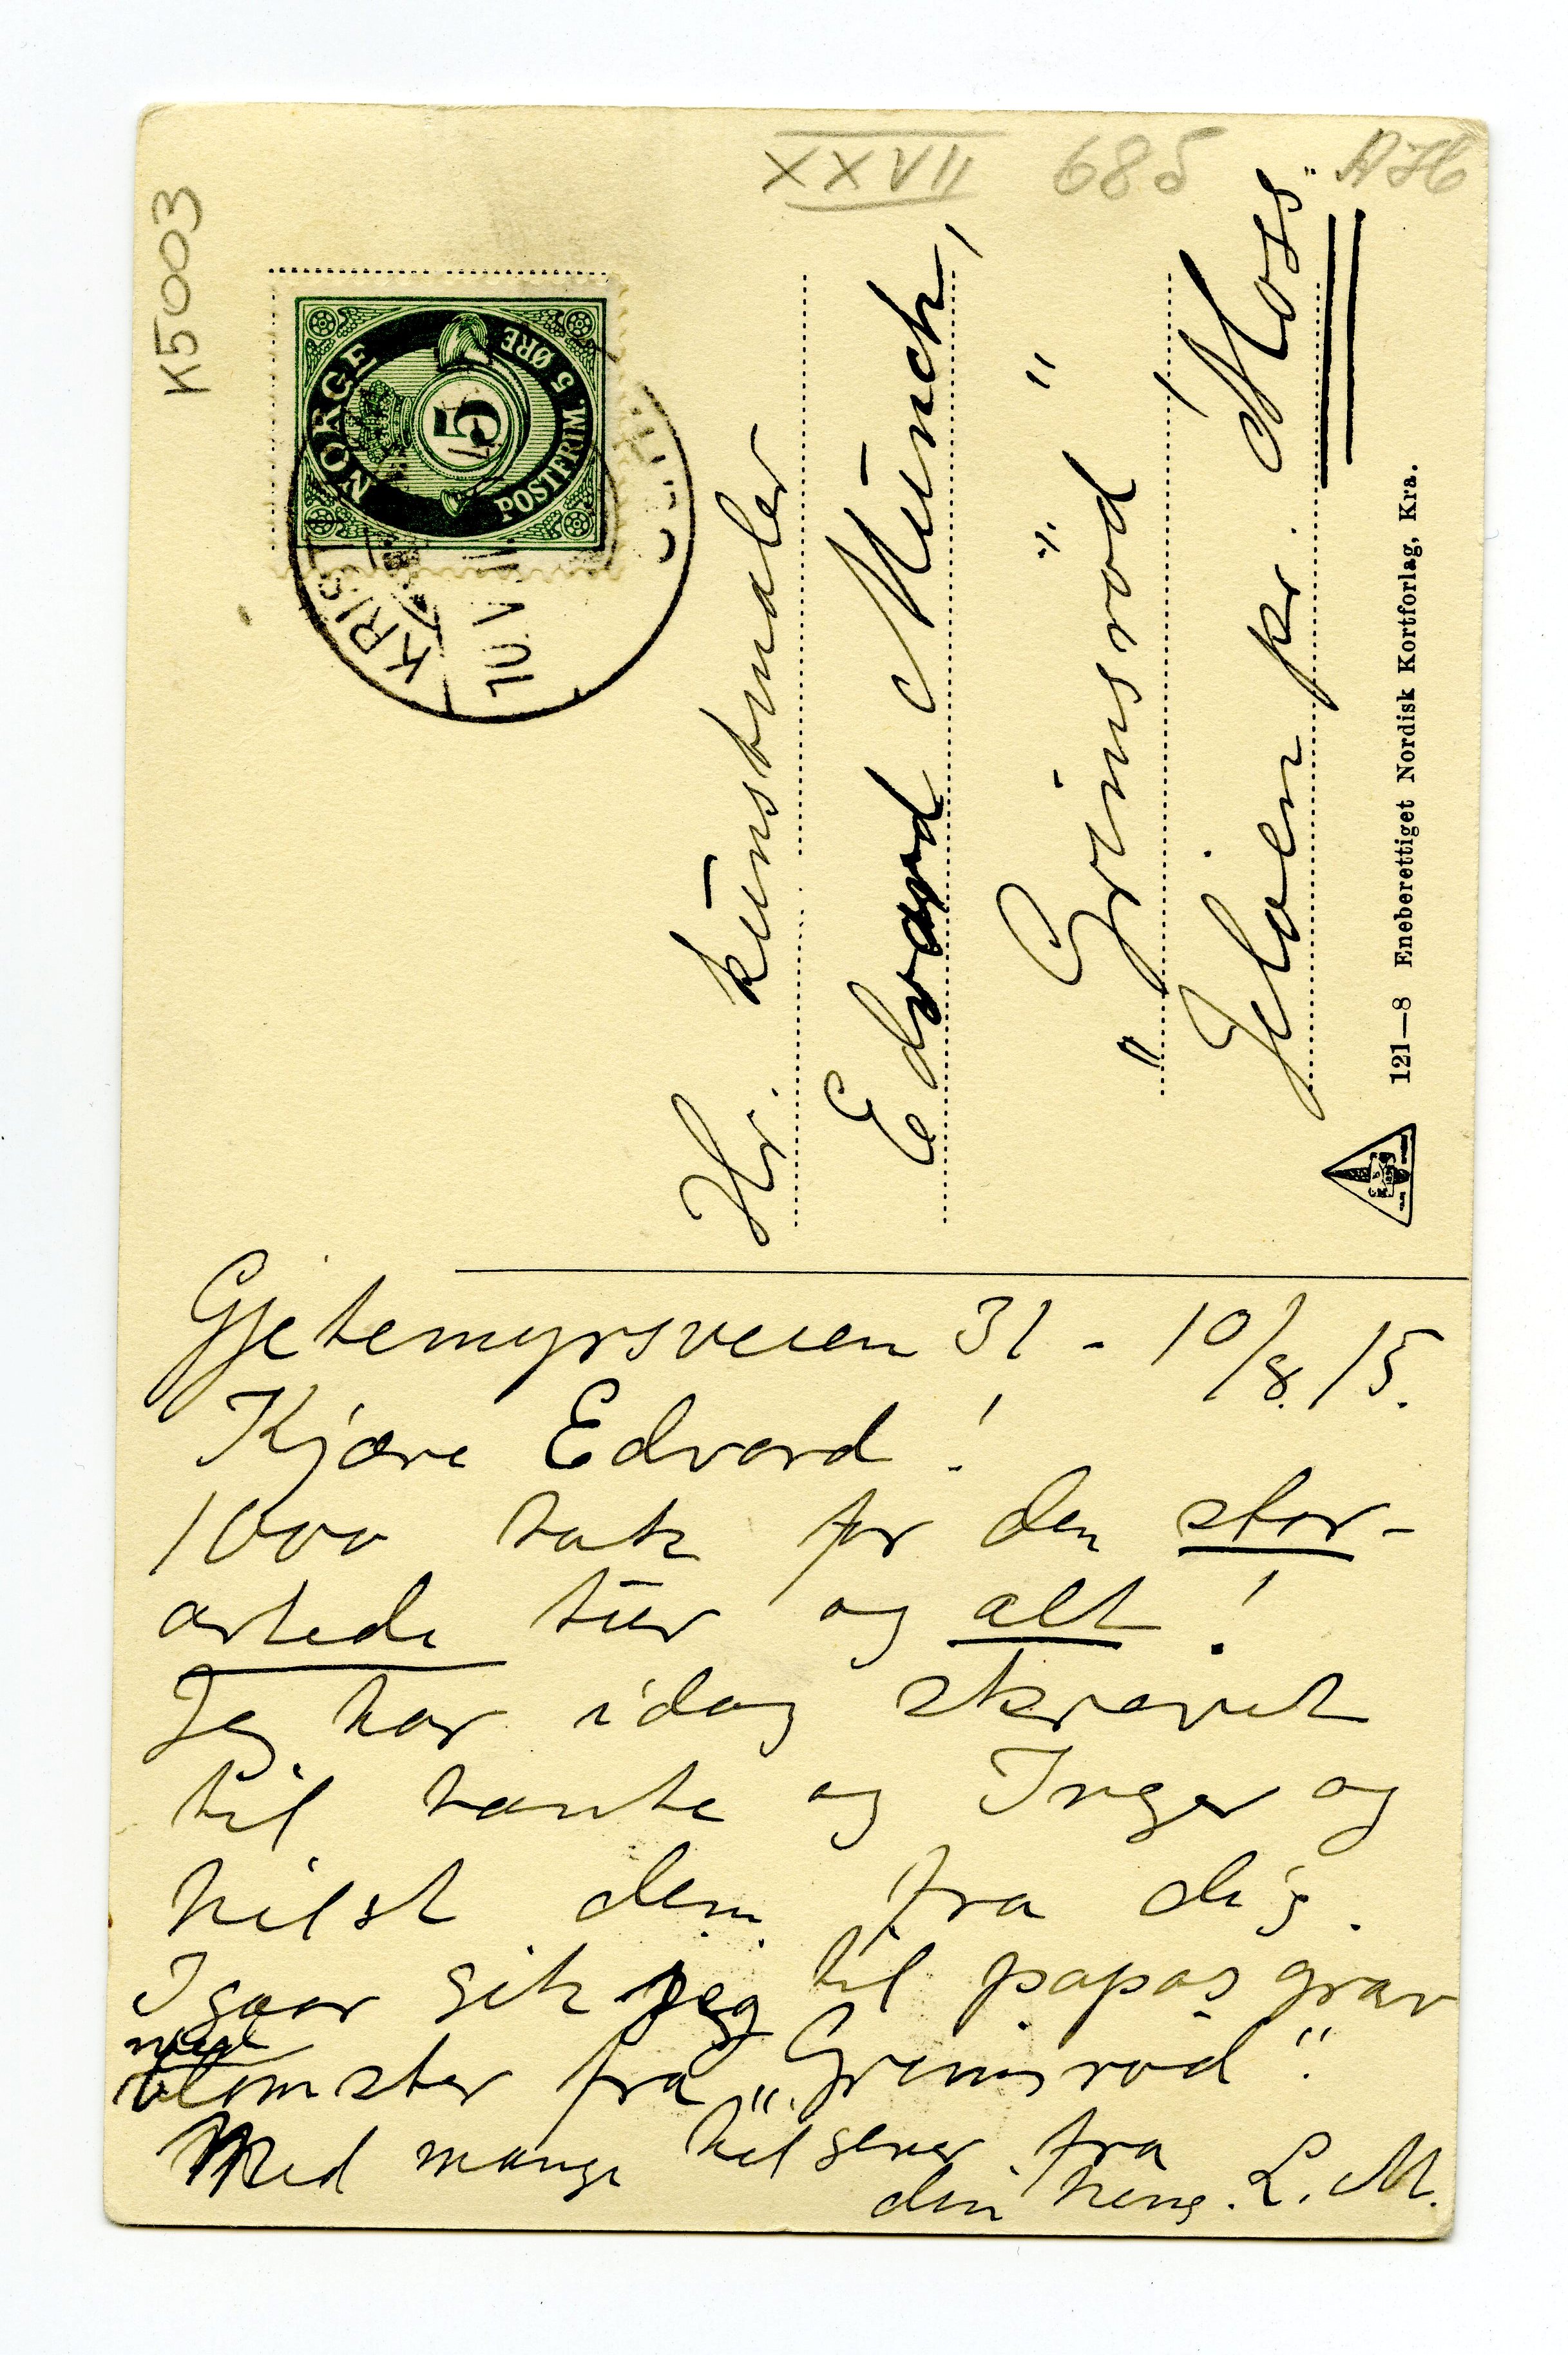 XXVII 685 AH
K5003
NORGE
POSTFRIM. 5 ØRE
5
KRIST
10 VIII
Hr. kunstmaler
Edvard Munch,
" Grimsrød "
Jeløen pr. Moss.
121—8 Eneberettiget Nordisk Kortforlag, Kra.
Gjetemyrsveien 31 - 10/8. 15.
Kjære Edvard!
1000 tak for den stor-
artede tur og alt!
Jeg har idag skrevet
til tante og Inger og
hilst dem fra dig.
Igaar gik jeg til papas grav
med
blomster fra „Grimsrød".
Med mange hilsener fra
din heng. L. M.